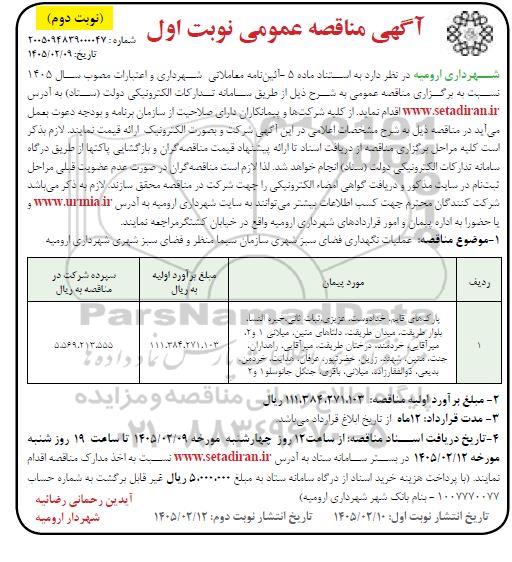 (نوبت دوم)
آگهی مناقصه عمومی نوبت اول
شماره : ۲۰۰۵۰۹۴۸۳۹۰۰۰۰۴۷
تاریخ: ۱۴۰۵/۰۲/۰۹
شهرداری ارومیه در نظر دارد به استناد ماده ۵ -آئین‌نامه معاملاتی شهرداری و اعتبارات مصوب سال ۱۴۰۵
نسبت به برگزاری مناقصه عمومی به شرح ذیل از طریق سامانه تدارکات الکترونیکی دولت (ستاد) به آدرس
www.setadiran.ir اقدام نماید. از کلیه شرکت‌ها و پیمانکاران دارای صلاحیت از سازمان برنامه و بودجه دعوت بعمل
می‌آید در مناقصه ذیل به شرح مشخصات اعلامی در این آگهی شرکت و بصورت الکترونیک ارائه قیمت نمایند. لازم بذکر
است کلیه مراحل برگزاری مناقصه از دریافت اسناد تا ارائه پیشنهاد قیمت مناقصه‌گران و بازگشایی پاکتها از طریق درگاه
سامانه تدارکات الکترونیکی دولت (ستاد) انجام خواهد شد. لذا لازم است مناقصه‌گران در صورت عدم عضویت قبلی مراحل
ثبت‌نام در سایت مذکور و دریافت گواهی امضاء الکترونیکی را جهت شرکت در مناقصه محقق سازند. لازم به ذکر می‌باشد
شرکت کنندگان محترم جهت کسب اطلاعات بیشتر می‌توانند به سایت شهرداری ارومیه به آدرس www.urmia.ir و
یا حضورا به اداره پیمان و امور قراردادهای شهرداری ارومیه واقع در خیابان کشتگر مراجعه نمایند.
۱-موضوع مناقصه: عملیات نگهداری فضای سبز شهری سازمان سیما منظر و فضای سبز شهری شهرداری ارومیه
ردیف
مورد پیمان
مبلغ برآورد اولیه به ریال
سپرده شرکت در مناقصه به ریال
۱
پارک‌های قایم، خدادوست، عزیزی،نبات ثانی،خیره النسا،
بلوار طریقت، میدان طریقت، دلتاهای متین، میلانی ۱ و۲،
میرآقایی، خردمند، درختان طریقت، میرآقایی، راهداران،
جنت، متین، شهند، زرین، خضرتپور، عرفان، هدایت، خردمن،
بدیعی، ذوالفقارزاده، میلانی، باقری، جنگل جانوسلو۱ و۲
۱۱۱،۳۸۴،۲۷۱،۱۰۳
۵،۵۶۹،۲۱۳،۵۵۵
۲- مبلغ برآورد اولیه مناقصه: ۱۱۱،۳۸۴،۲۷۱،۱۰۳ ریال
۳- مدت قرارداد: ۱۲ماه از تاریخ ابلاغ قرارداد می‌باشد.
۴-تاریخ دریافت اسناد مناقصه: از ساعت۱۲ روز چهارشنبه مورخه ۱۴۰۵/۰۲/۰۹ تا ساعت ۱۹ روز شنبه
مورخه ۱۴۰۵/۰۲/۱۲ در بستر سامانه ستاد به آدرس www.setadiran.ir نسبت به اخذ مدارک مناقصه اقدام
نمایند. (با پرداخت هزینه خرید اسناد از درگاه سامانه ستاد به مبلغ ۵،۰۰۰،۰۰۰ ریال غیر قابل برگشت به شماره حساب
۱۰۰۷۷۷۰۰۷۷ - بنام بانک شهر شهرداری ارومیه)
تاریخ انتشار نوبت اول: ۱۴۰۵/۰۲/۱۰
تاریخ انتشار نوبت دوم: ۱۴۰۵/۰۲/۱۲
آیدین رحمانی رضائیه
شهردار ارومیه